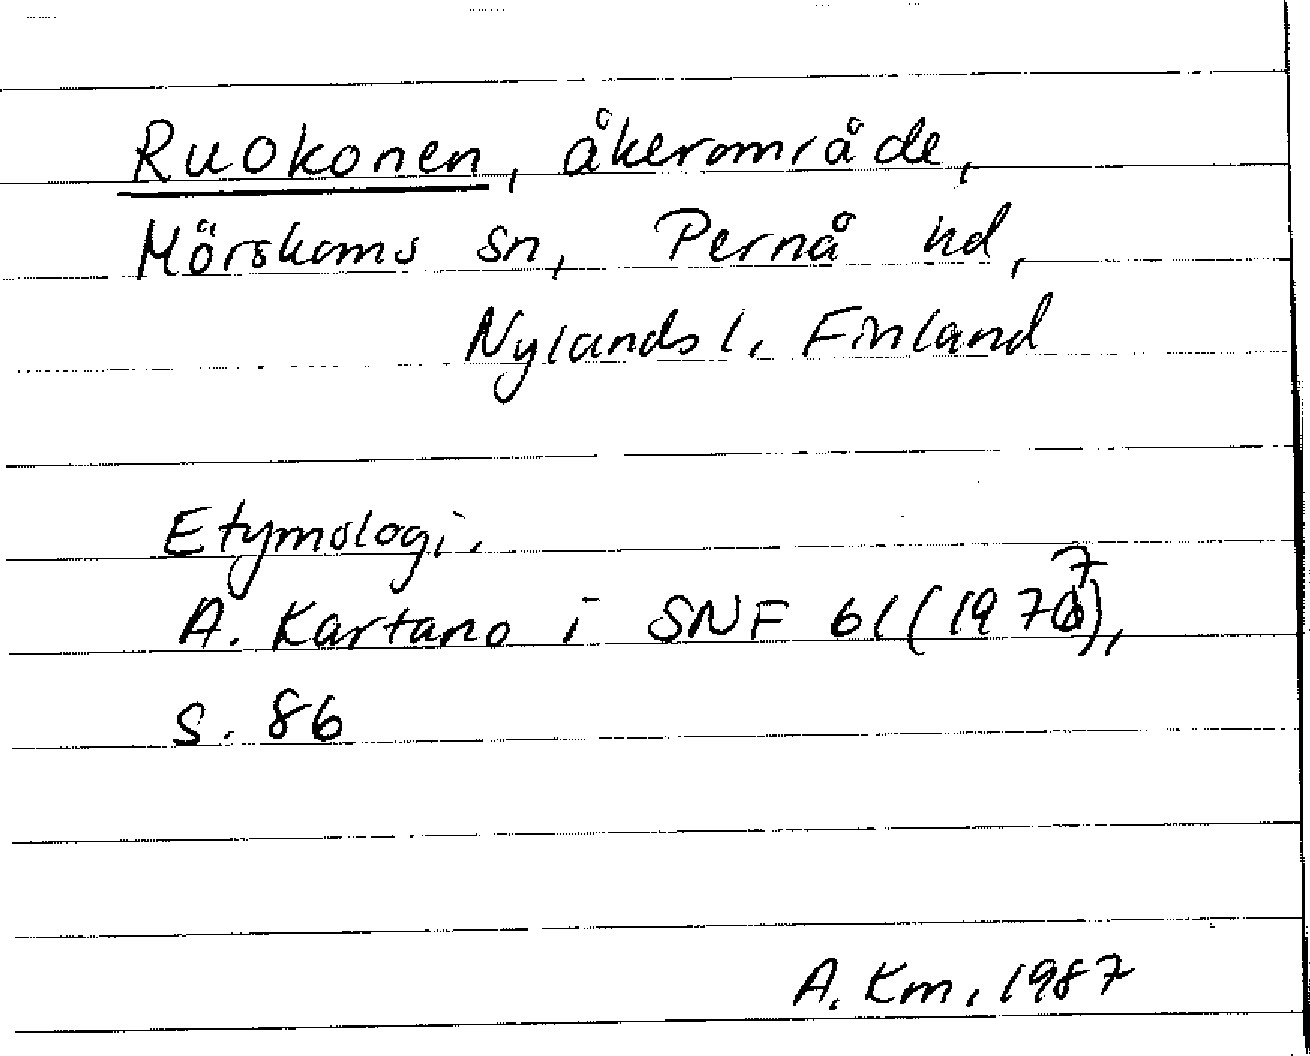 Ruokonen, åkerområde,
Mörskoms sn, Pernå hd,
Nylands l. Finland
Etymologi.
A. Kartano i SNF 61 (1977),
s. 86
A. Km. 1987